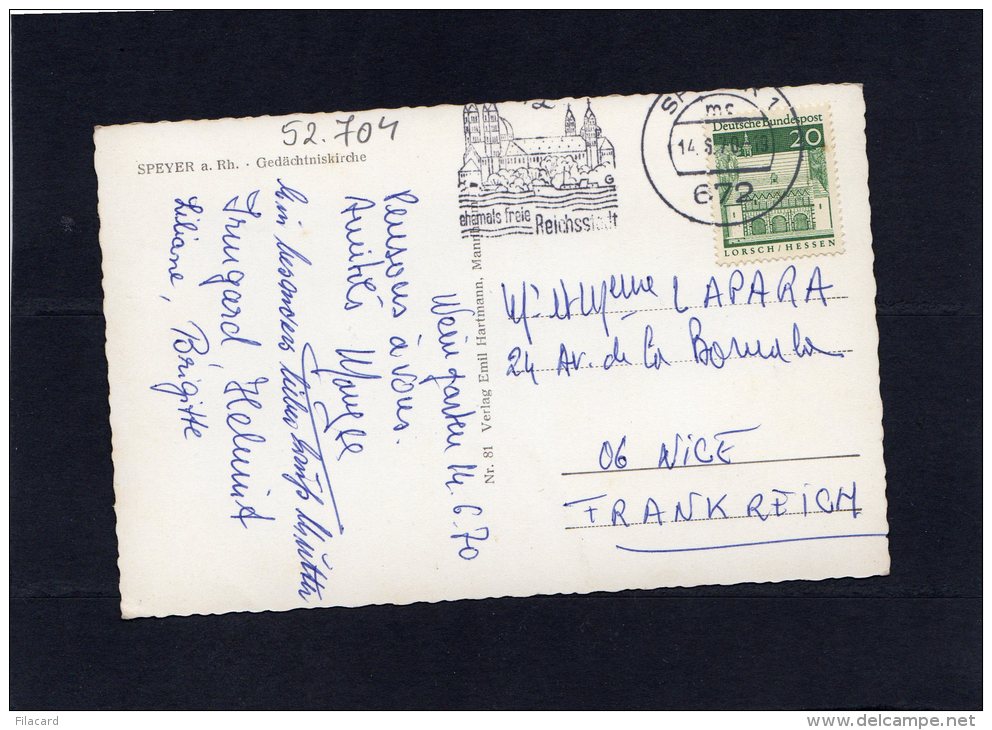 52.704
SPEYER a. Rh. · Gedächtniskirche
Weingarten 14.6.70
Pensons à vous.
Amitiés
Ein besonders lieber Gruß Mutti
Irmgard Helmut
Liliane, Brigitte
Nr. 81 Verlag Emil Hartmann, Mannheim
ehemals freie Reichsstadt
1
mc
14.6.70
672
Deutsche Bundespost
20
LORSCH/HESSEN
LAPARA
24 Av. de la
06 NICE
FRANKREICH
Filacard
www.delcampe.net